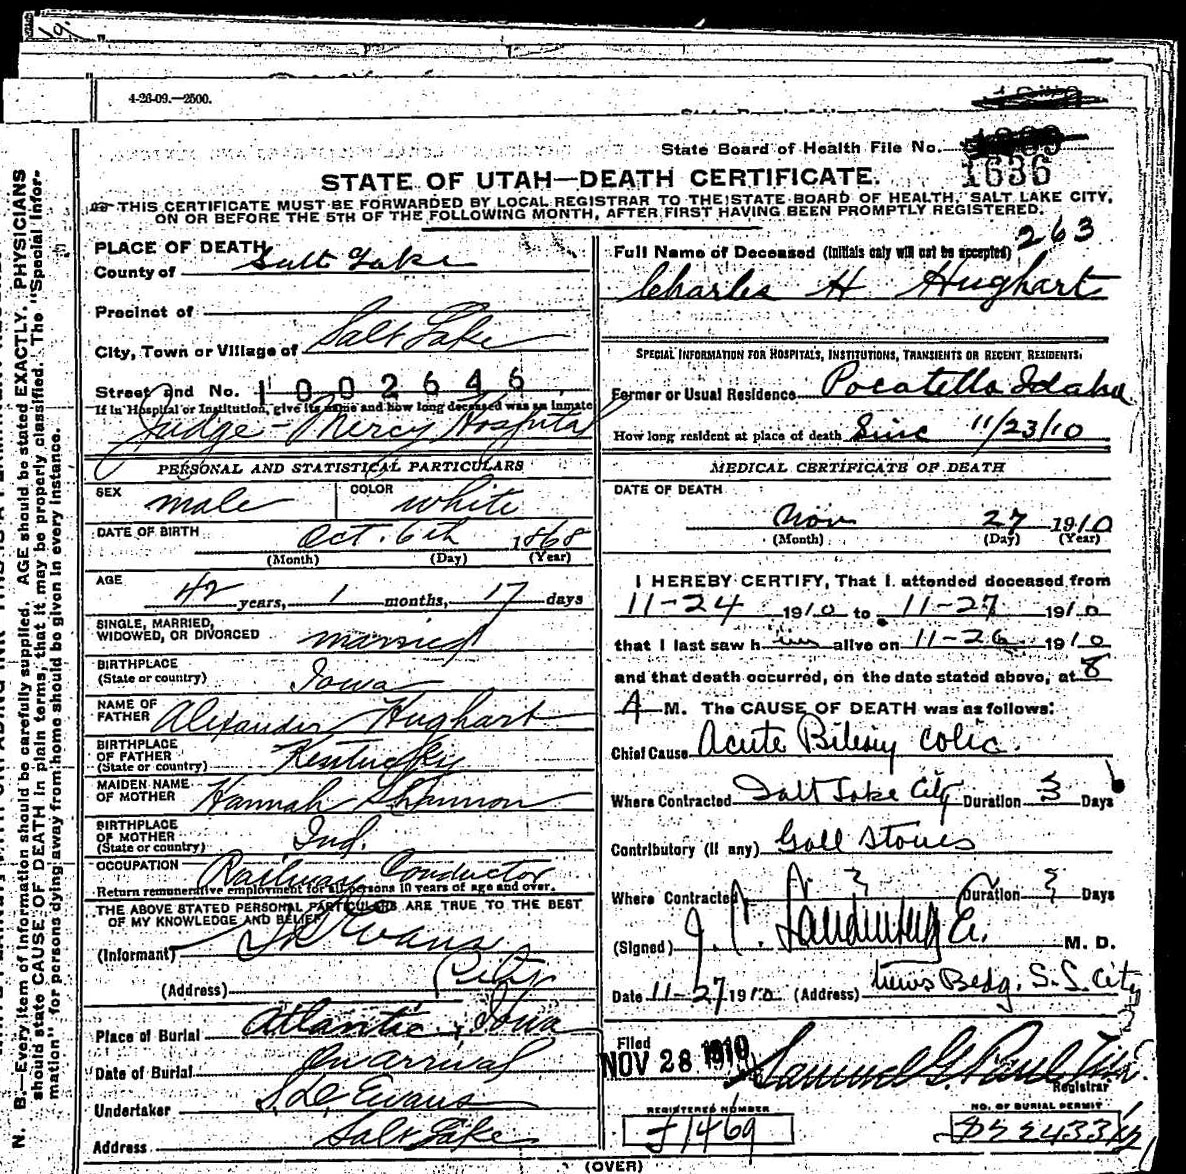 4-26-09.—2500.
State Board of Health File No. 1636
STATE OF UTAH—DEATH CERTIFICATE.
THIS CERTIFICATE MUST BE FORWARDED BY LOCAL REGISTRAR TO THE STATE BOARD OF HEALTH, SALT LAKE CITY,
ON OR BEFORE THE 5TH OF THE FOLLOWING MONTH, AFTER FIRST HAVING BEEN PROMPTLY REGISTERED.
PLACE OF DEATH
County of Salt Lake
Precinct of
City, Town or Village of Salt Lake
Street and No. 1002646
If in Hospital or Institution, give its name and how long deceased was an inmate
Judge-Mercy Hospital
PERSONAL AND STATISTICAL PARTICULARS
SEX male COLOR white
DATE OF BIRTH Oct. 6th 1868
(Month) (Day) (Year)
AGE 42 years, 1 months, 17 days
SINGLE, MARRIED,
WIDOWED, OR DIVORCED married
BIRTHPLACE
(State or country) Iowa
NAME OF
FATHER Alexander Hughart
BIRTHPLACE
OF FATHER
(State or country) Kentucky
MAIDEN NAME
OF MOTHER Hannah Shannon
BIRTHPLACE
OF MOTHER
(State or country) Ind.
OCCUPATION Railway Conductor
Return remunerative employment for all persons 10 years of age and over.
THE ABOVE STATED PERSONAL PARTICULARS ARE TRUE TO THE BEST
OF MY KNOWLEDGE AND BELIEF
(Informant) Evans
(Address) City
Place of Burial Atlantic, Iowa
Date of Burial On arrival
Undertaker S.D. Evans
Address Salt Lake
263
Full Name of Deceased (Initials only will not be accepted)
Charles H Hughart
SPECIAL INFORMATION FOR HOSPITALS, INSTITUTIONS, TRANSIENTS OR RECENT RESIDENTS.
Former or Usual Residence Pocatello Idaho
How long resident at place of death Since 11/23/10
MEDICAL CERTIFICATE OF DEATH
DATE OF DEATH
Nov 27 1910
(Month) (Day) (Year)
I HEREBY CERTIFY, That I attended deceased from
11-24 1910 to 11-27 1910
that I last saw him alive on 11-26 1910
and that death occurred, on the date stated above, at 8
A M. The CAUSE OF DEATH was as follows:
Chief Cause Acute Biliary Colic
Where Contracted Salt Lake City Duration 3 Days
Contributory (if any) Gall Stones
Where Contracted Duration Days
(Signed) M. D.
Date 11-27 1910 (Address) News Bldg. S. L. City
Filed
NOV 28 1910 Samuel G. Paul
Registrar
REGISTERED NUMBER
NO. OF BURIAL PERMIT
(OVER)
N. B.—Every item of information should be carefully supplied. AGE should be stated EXACTLY. PHYSICIANS
should state CAUSE OF DEATH in plain terms, that it may be properly classified. The "Special Infor-
mation" for persons dying away from home should be given in every instance.